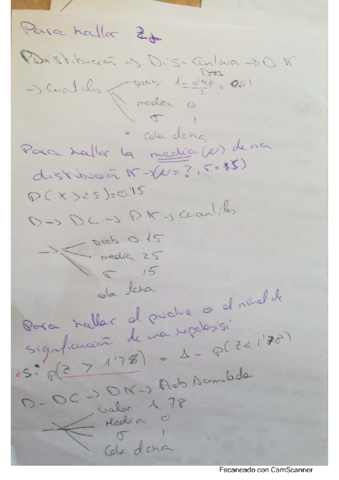 Para hallar Zα
Distribución → Dis-Continua → D N
→ Cuantiles prob: 1-
media 0
σ 1
cola dcha
Para hallar la media (μ) de una
distribución N → (μ = ?, σ = 15)
P(X > 25) = 0.15
D → DC → DN → Cuantiles
→ prob 0.15
media 25
σ 15
cola dcha
Para hallar el pvalue o el nivel de
significación de una hipotesis
si p(Z > 1'78) = 1 - p(Z < 1'78)
D - DC → DN → Prob Acumulada
valor 1.78
Media 0
σ 1
Cola dcha
Escaneado con CamScanner